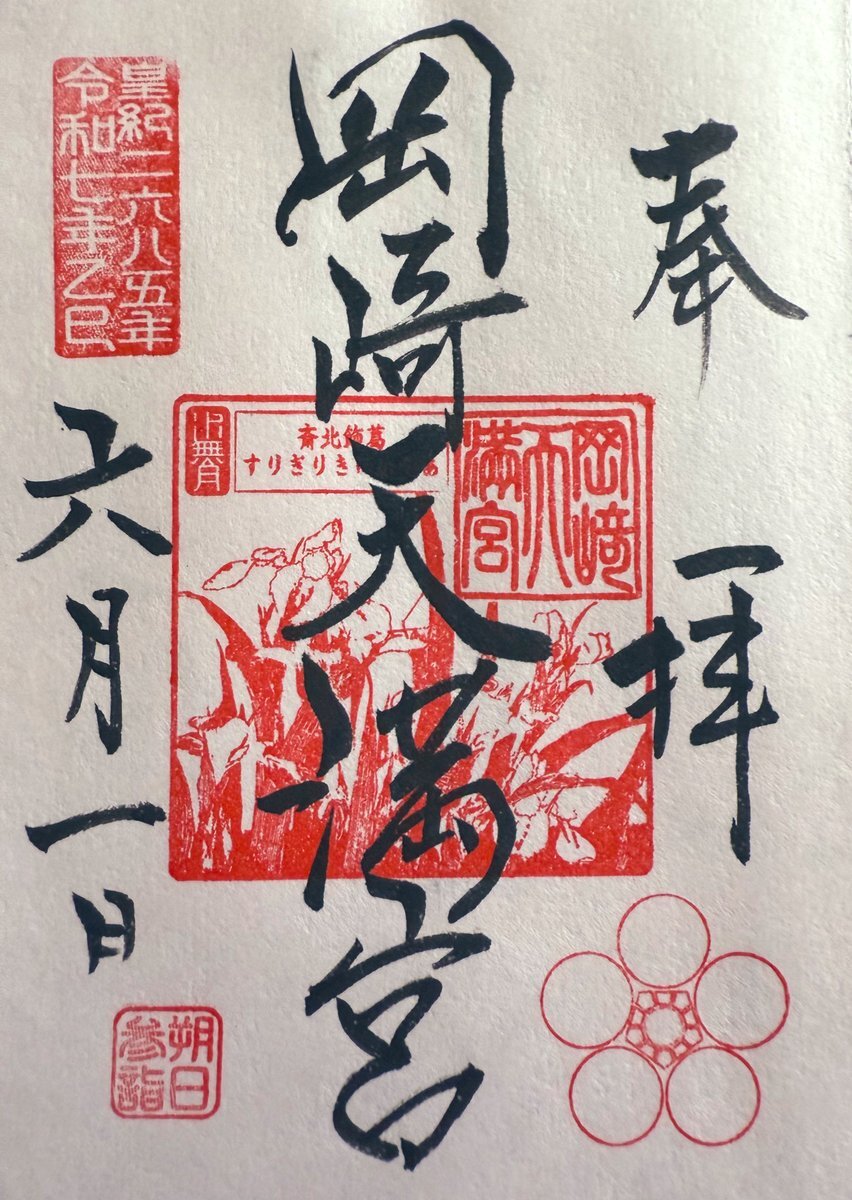 奉拝
岡﨑天満宮
岡﨑天満宮
葛飾北斎
きりぎりす
水無月
皇紀二六八五年
令和七年乙巳
六月一日
朔日
参詣